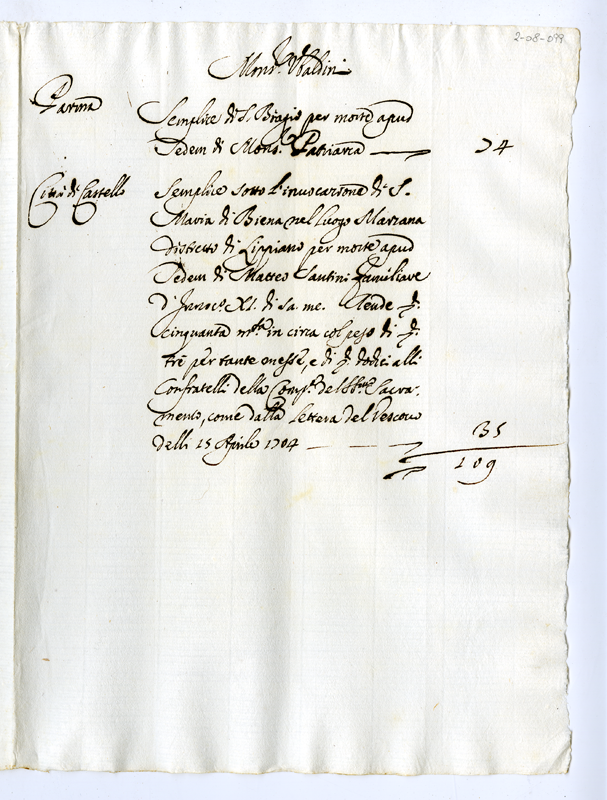 2-08-099
Mons.r Ubaldini
Parma
Semplice di S. Biagio per morte apud
Sedem di Mons.r Patriarca — 74
Città di Castello
Semplice sotto l'invocazione di S.
Maria di Biena nel luogo Marzana
distretto di Lippiano per morte apud
Sedem di Matteo Santini familiare
d'Innoc.o XI. di sa: me: Rende
cinquanta m.ta in circa col peso di
trè per tante messe, e di dodici alli
Confratelli della Comp.a del SS.mo Sacra-
mento, come dalla lettera del Vescovo
delli 15 Aprile 1704 — 35
109